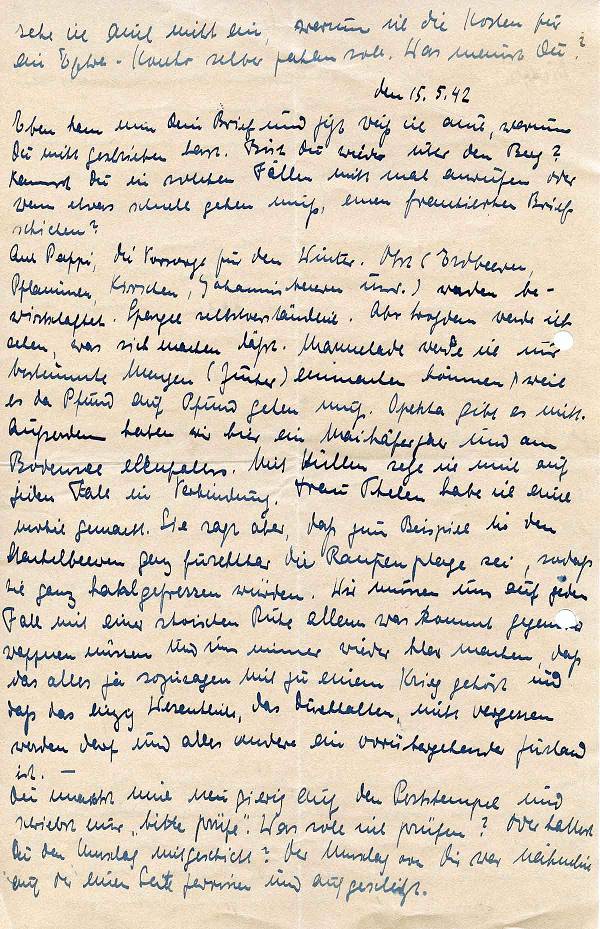 sehe ich auch nicht ein, warum ich die Kosten für
ein Extra-Konto selber zahlen soll. Was meinst Du?
den 15.5.42
Eben kam nun Dein Brief und jetzt weiß ich auch, warum
Du nicht geschrieben hast. Bist Du wieder über den Berg?
Kannst Du in solchen Fällen nicht mal anrufen oder
wenn etwas schnell gehen muß, einen frankierten Brief
schicken?
Auch Pappi, die Vorsorge für den Winter. Obst (Erdbeeren,
Pflaumen, Kirschen, Johannisbeeren usw.) werden be-
wirtschaftet. Spargel selbstverständlich. Aber trotzdem werde ich
sehen, was sich machen läßt. Marmelade werde ich nur
bestimmte Mengen (Zucker) einmachen können, weil
es da Pfund auf Pfund gehen muß. Opekta gibt es nicht.
Außerdem haben wir hier ein Maikäferjahr und am
Bodensee ebenfalls. Mit Hüllen setze ich mich auf
jeden Fall in Verbindung. Frau Thelen habe ich auch
mobil gemacht. Sie sagt aber, daß zum Beispiel bei den
Stachelbeeren ganz furchtbar die Raupenplage sei, sodaß
sie ganz kahlgefressen würden. Wir müssen uns auf jeden
Fall mit einer stoischen Ruhe allem was kommt gegenüber
waffnen müssen und uns immer wieder klar machen, daß
das alles ja sozusagen mit zu einem Krieg gehört und
daß das einzig Wesentliche, das Durchhalten, nicht vergessen
werden darf und alles andere ein vorübergehender Zustand
ist. —
Du machst mich neugierig auf den Poststempel und
schriebst nur „bitte prüfe“. Was soll ich prüfen? Oder hattest
Du den Umschlag mitgeschickt? Der Umschlag von Dir war
auf der einen Seite zerrissen und aufgeschlitzt.